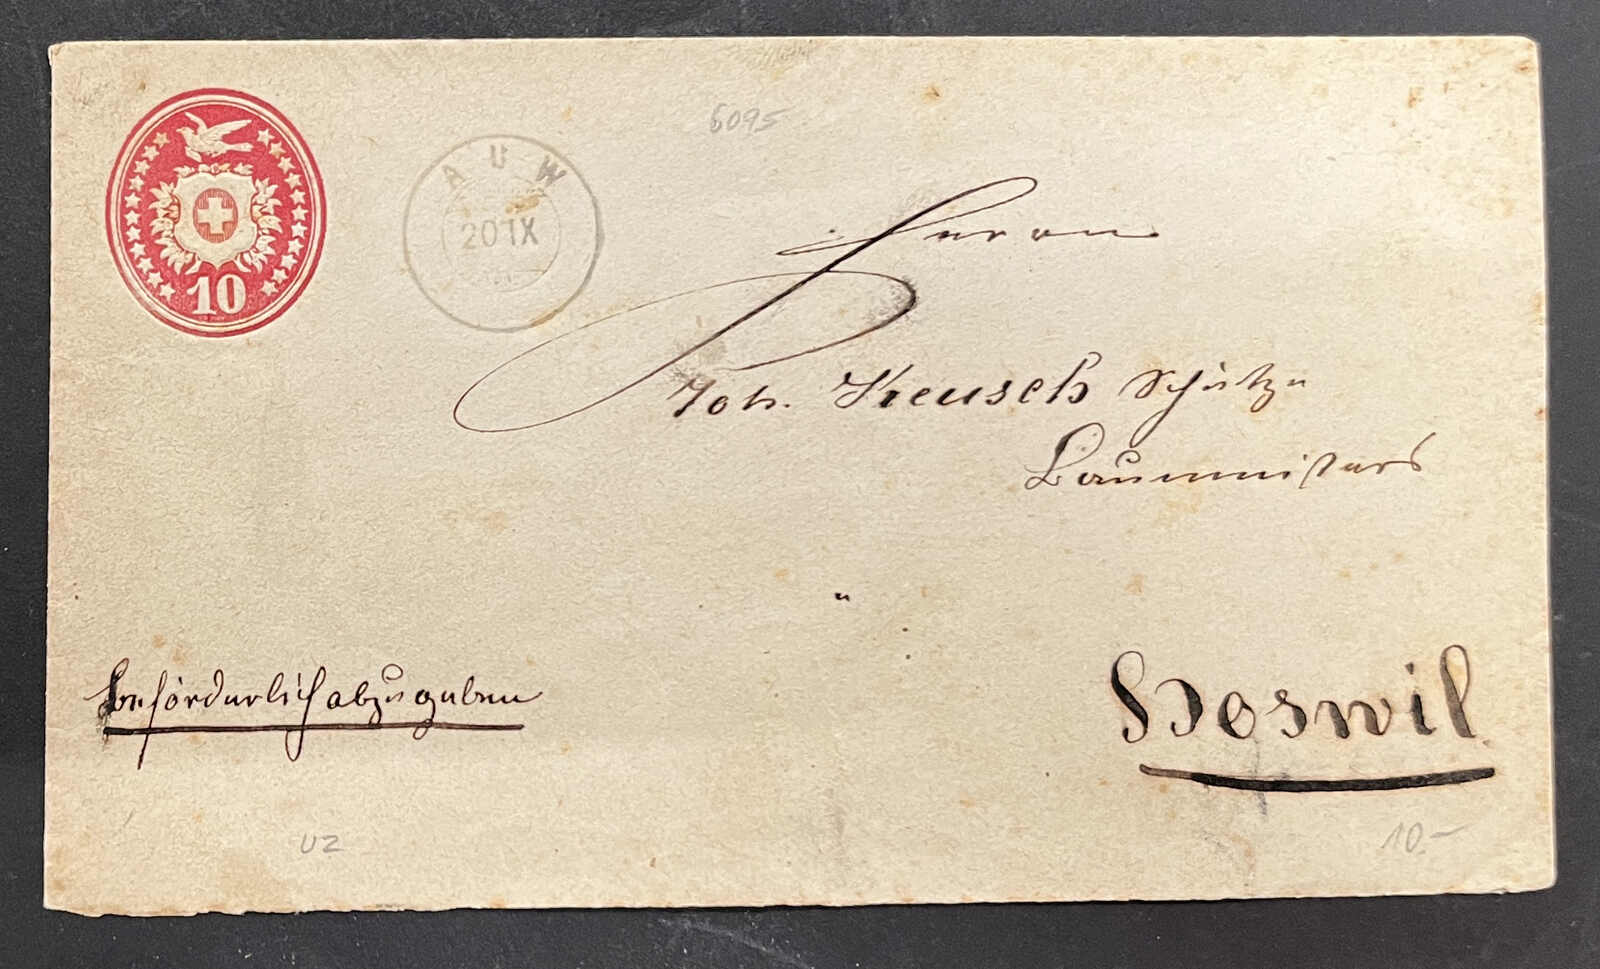 6095
10
AUW
20 IX
Herrn
Joh. Keusch Schützn
Baumeisters
Boswil.
beförderlich abzugeben
UZ
10.-